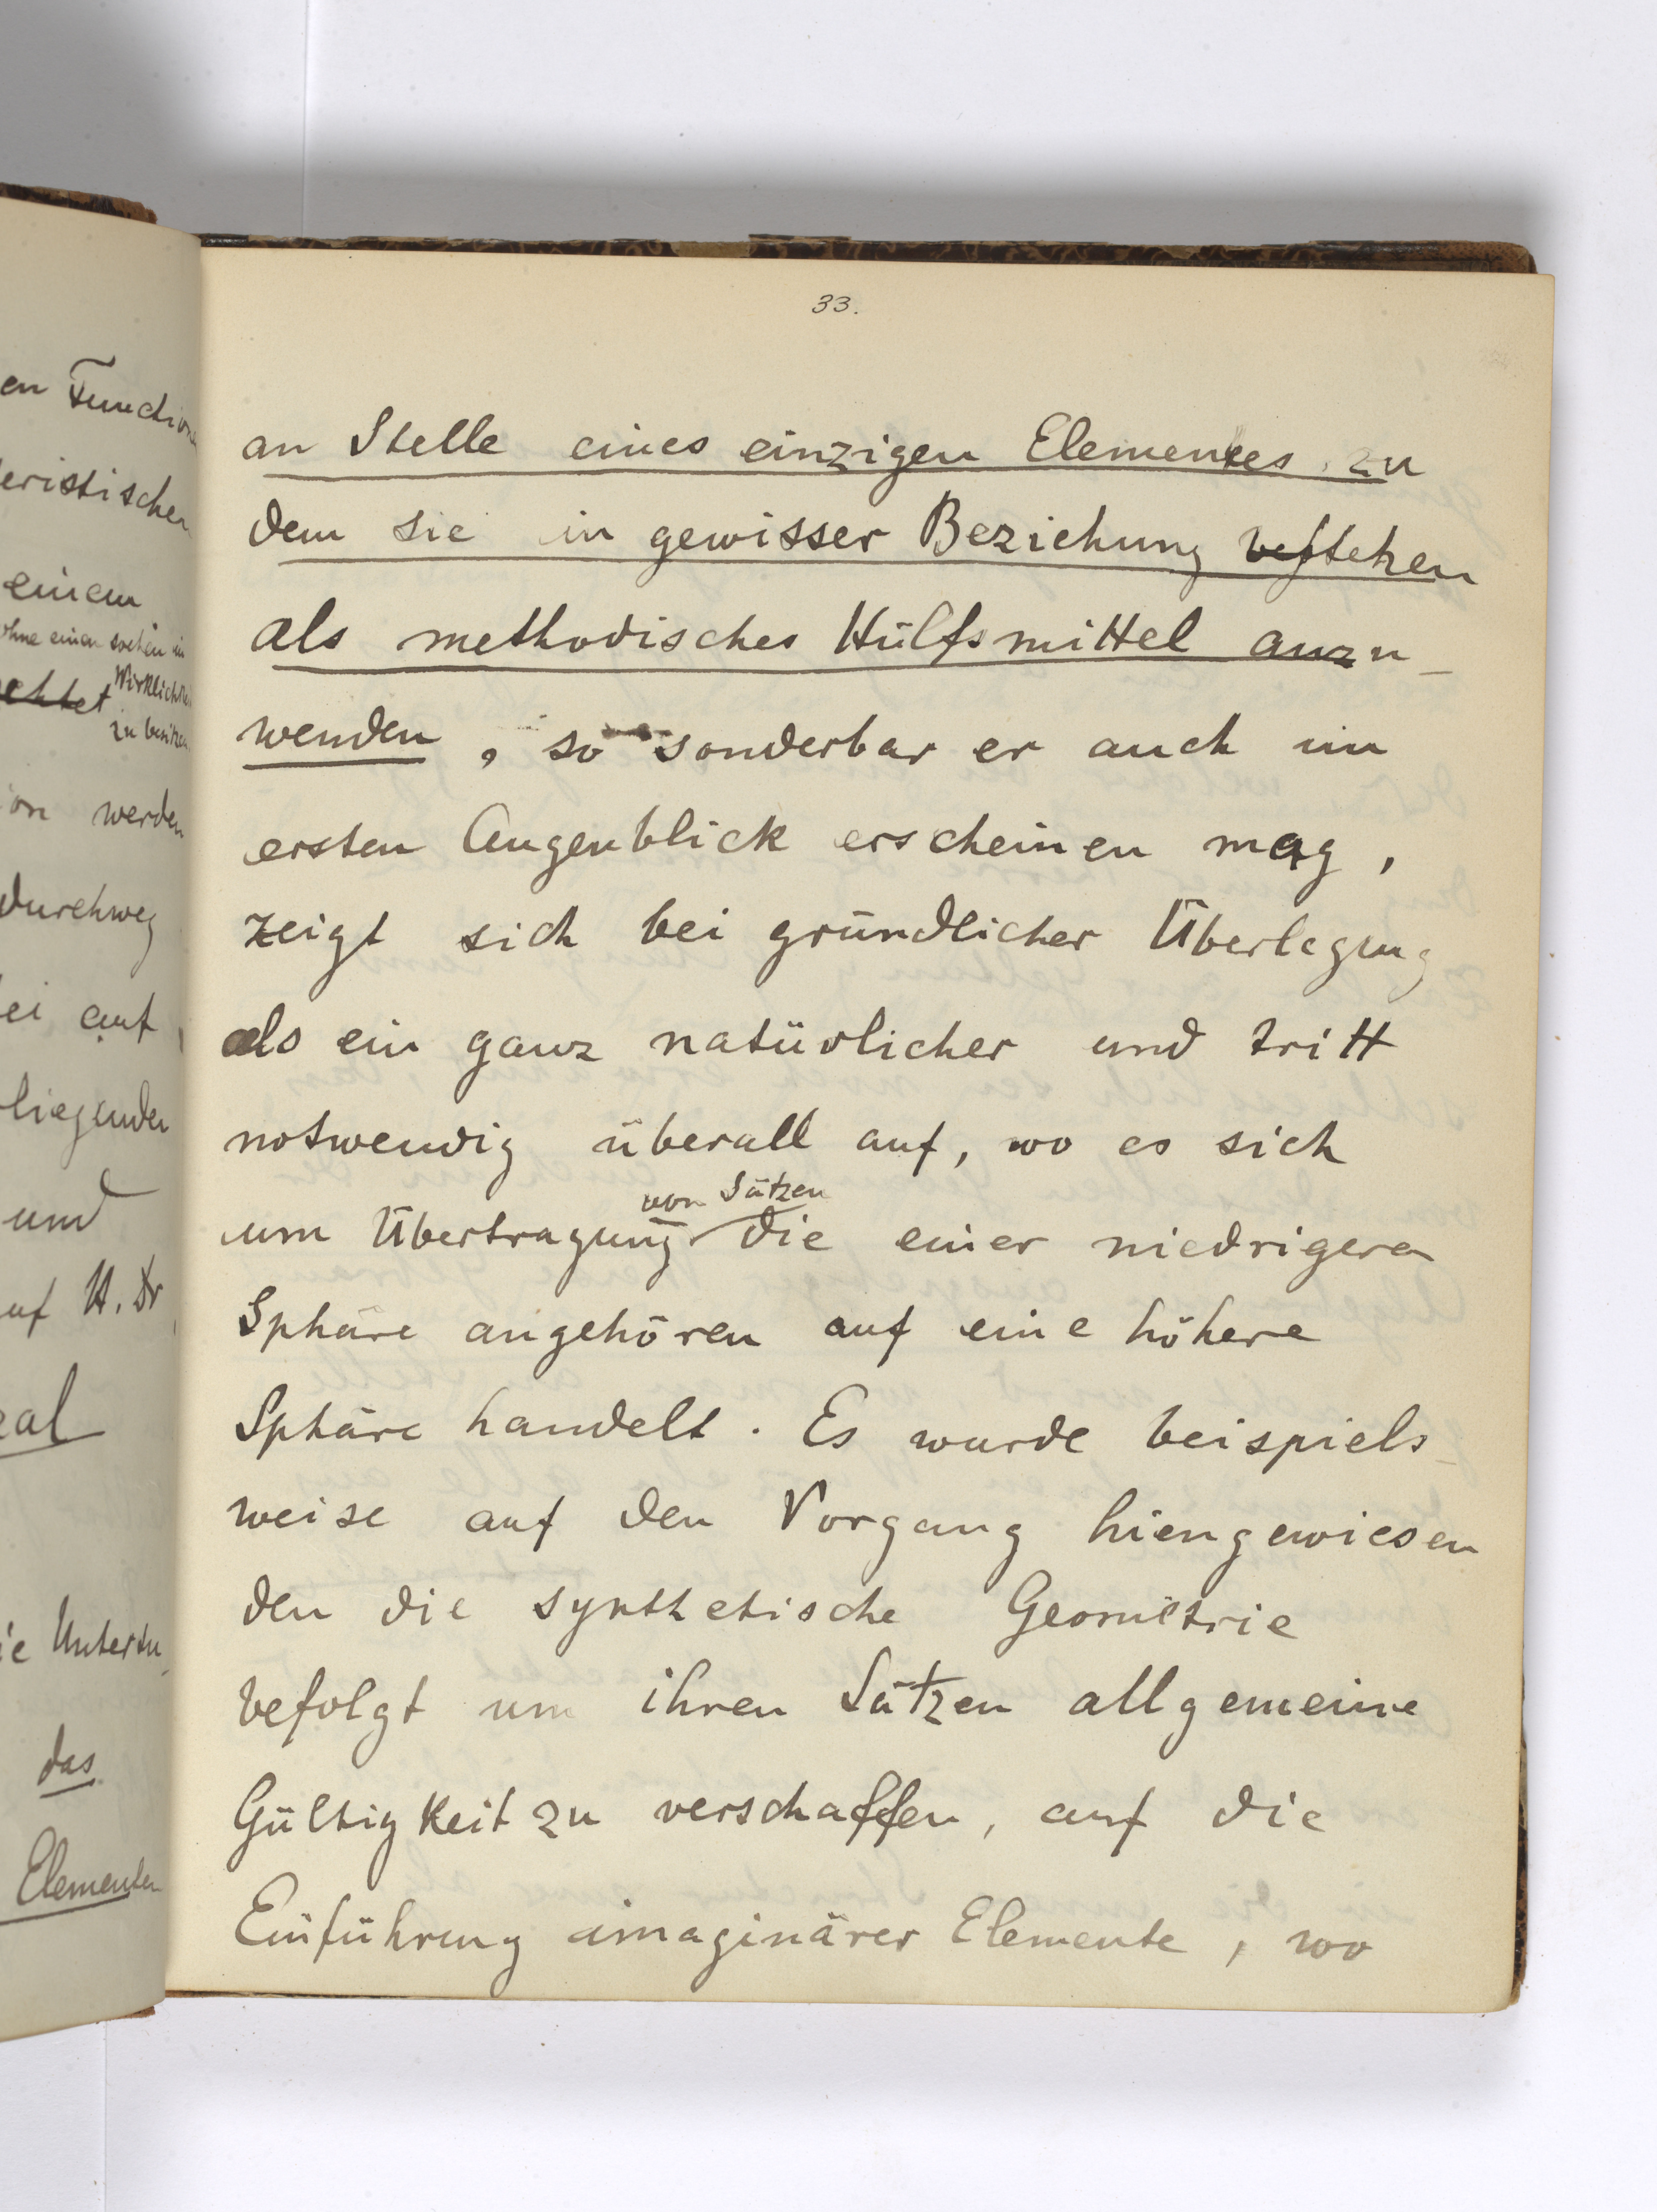 en Function
eristischen
einem
ohne einen
Wirklichke
zu besitzen
ion werden
durchweg
ei auf
liegenden
und
auf H. Dr
eal
ie Untersu
das
Elementen
33.
an Stelle eines einzigen Elementes, zu
dem sie in gewisser Beziehung bestehen
als methodisches Hülfsmittel anzu-
wenden, so sonderbar er auch im
ersten Augenblick erscheinen mag,
zeigt sich bei gründlicher Überlegung
als ein ganz natürlicher und tritt
notwendig überall auf, wo es sich
von Sätzen
um Übertragung die einer niedrigeren
Sphäre angehören auf eine höhere
Sphäre handelt. Es wurde beispiels-
weise auf den Vorgang hiengewiesen
den die synthetische Geometrie
befolgt um ihren Sätzen allgemeine
Gültigkeit zu verschaffen, auf die
Einführung imaginärer Elemente, wo